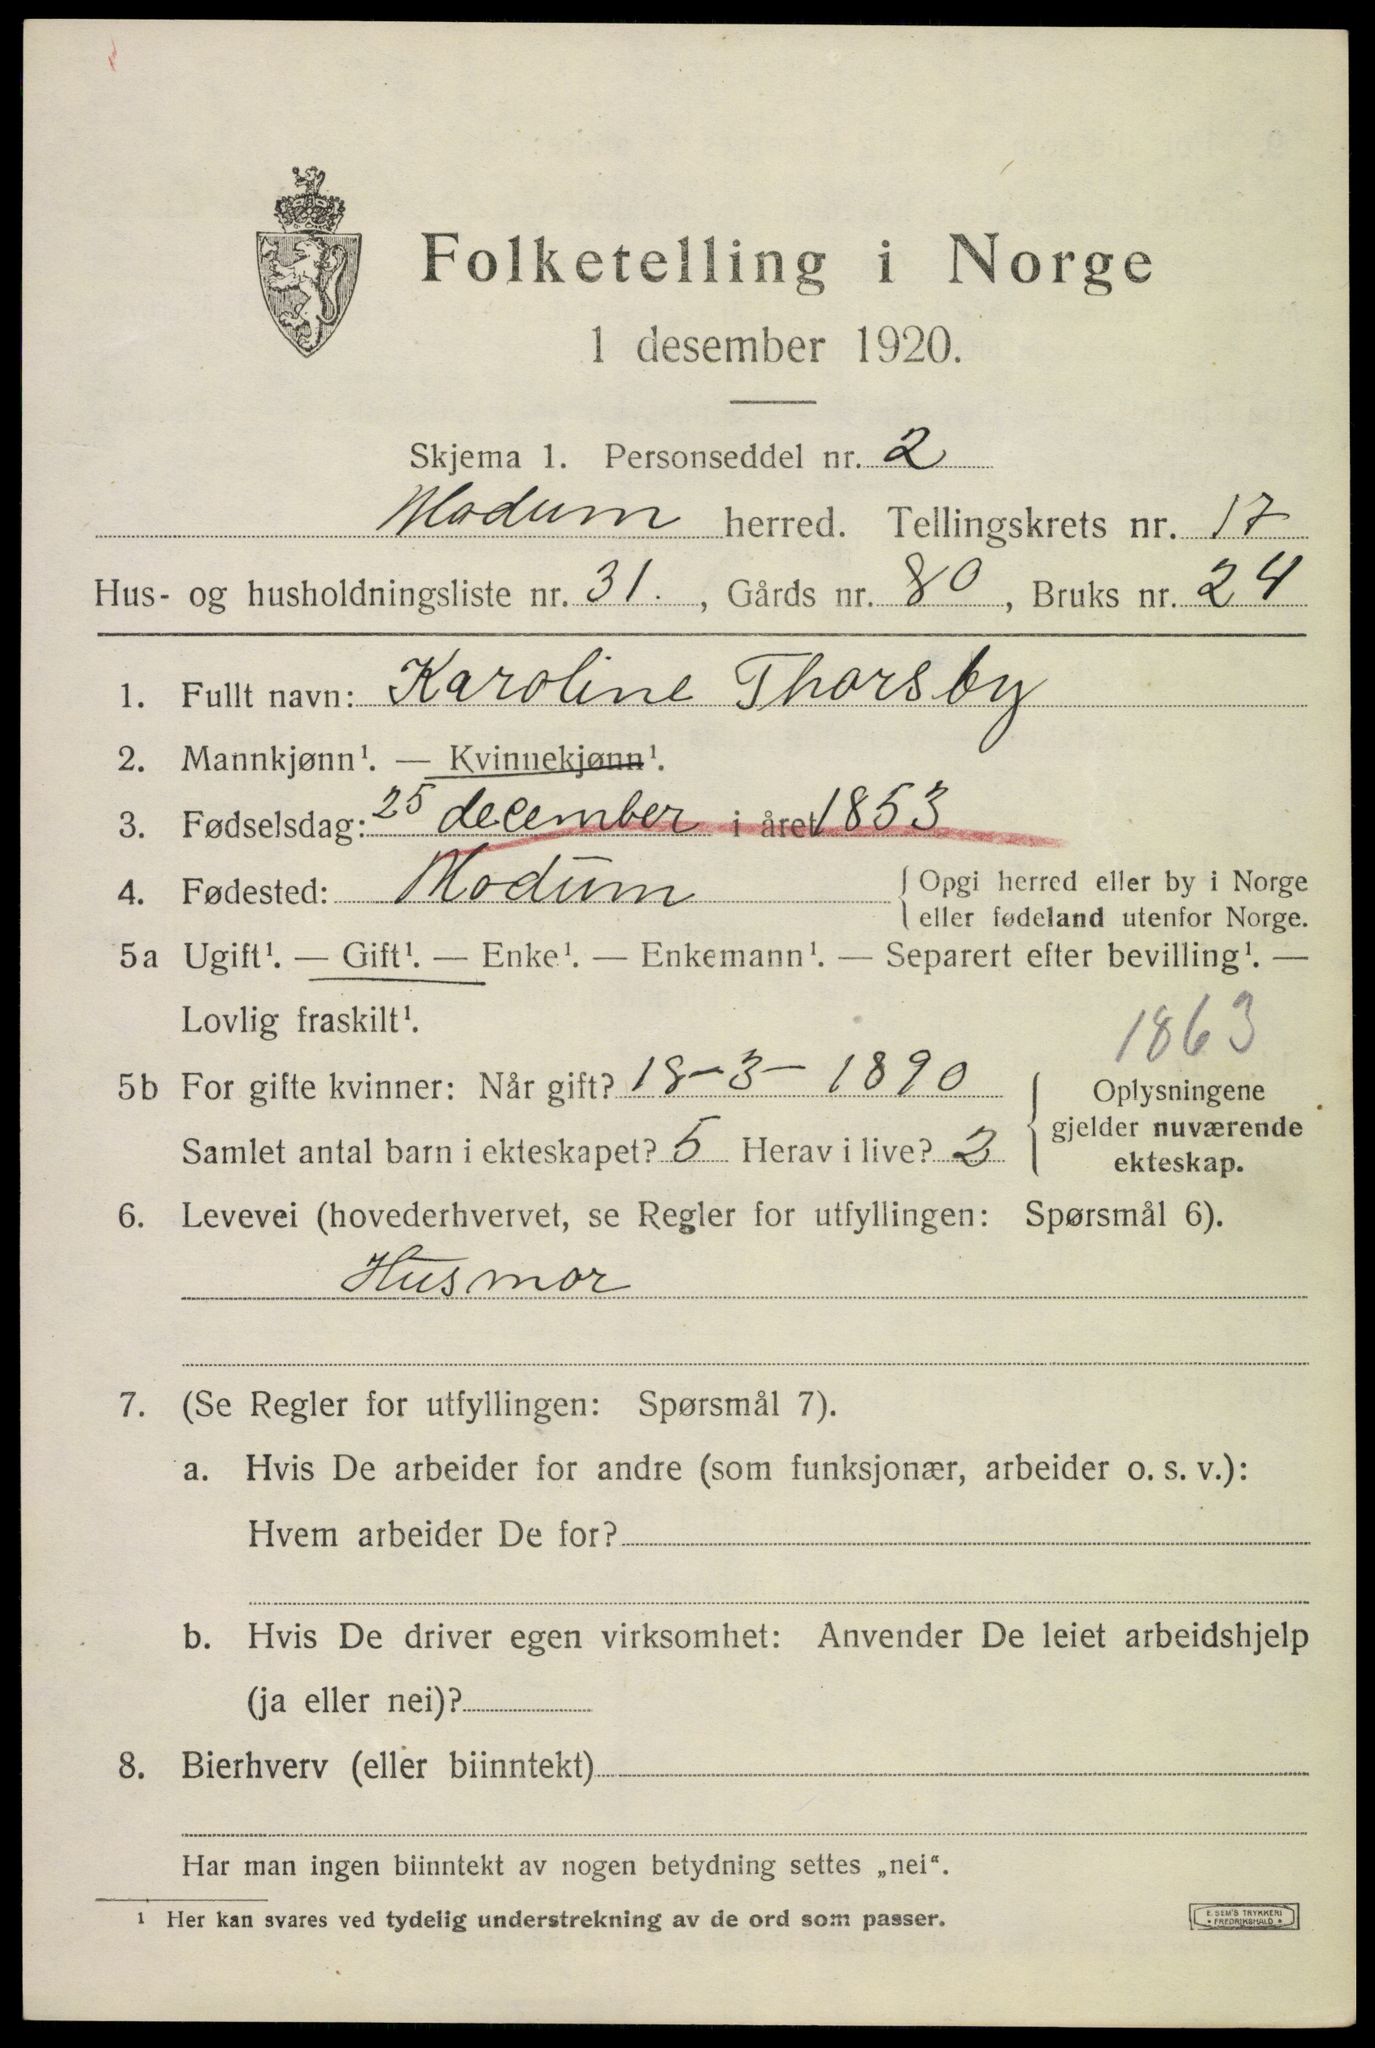 Folketelling i Norge
1 desember 1920.
Skjema 1. Personseddel nr. 2
Modum herred. Tellingskrets nr. 17
Hus- og husholdningsliste nr. 31. , Gårds nr. 80 , Bruks nr. 24
1. Fullt navn: Karoline Thorsby
2. Mannkjønn¹. — Kvinnekjønn¹.
3. Fødselsdag: 25 december i året 1853
4. Fødested: Modum { Opgi herred eller by i Norge
eller fødeland utenfor Norge.
5a Ugift¹. — Gift¹. — Enke¹. — Enkemann¹. — Separert efter bevilling¹. —
Lovlig fraskilt¹.
1863
5b For gifte kvinner: Når gift? 18-3-1890 { Oplysningene
gjelder nuværende
Samlet antal barn i ekteskapet? 5 Herav i live? 3
ekteskap.
6. Levevei (hovederhvervet, se Regler for utfyllingen: Spørsmål 6).
Husmor
7. (Se Regler for utfyllingen: Spørsmål 7).
a. Hvis De arbeider for andre (som funksjonær, arbeider o. s. v.):
Hvem arbeider De for?
b. Hvis De driver egen virksomhet: Anvender De leiet arbeidshjelp
(ja eller nei)?
8. Bierhverv (eller biinntekt)
Har man ingen biinntekt av nogen betydning settes „nei“.
¹ Her kan svares ved tydelig understrekning av de ord som passer.
E. SEM'S TRYKKERI
• FREDRIKSHALD •